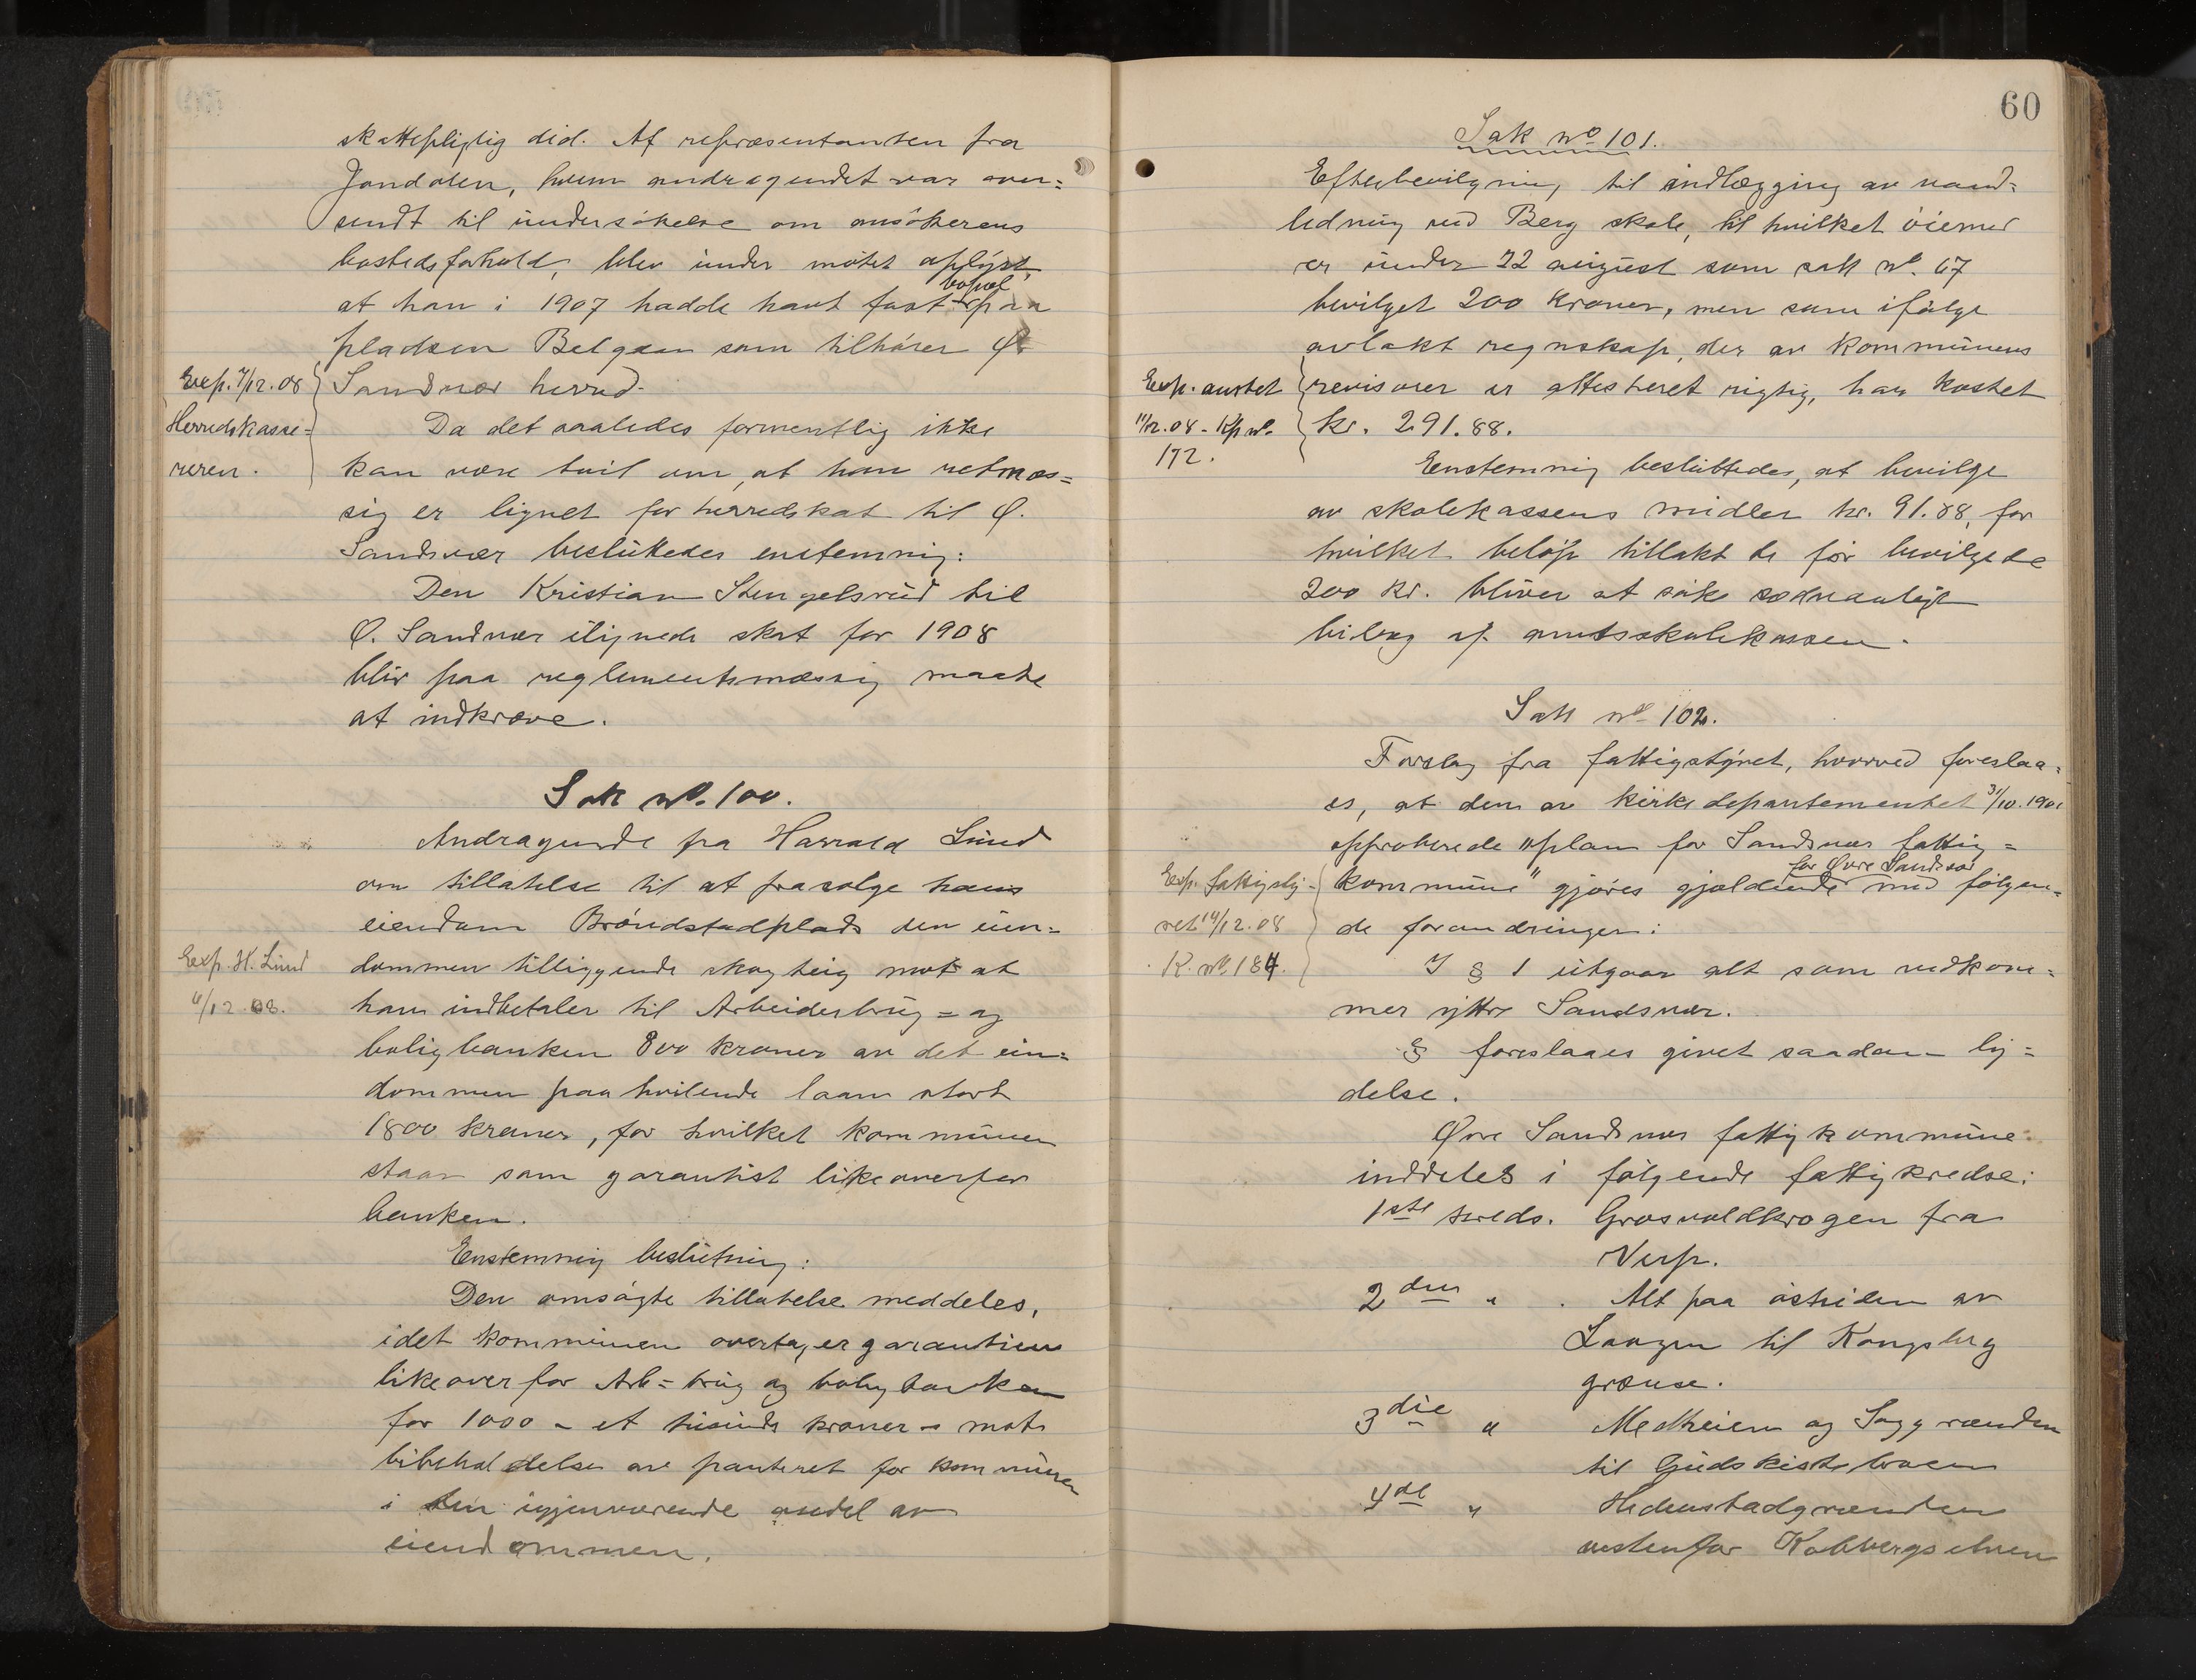 skattepligtig did. Af repræsentanten fra
Jondalen, hvem andragendet var over=
sendt til undersökelse om ansökerens
bostedsforhold, blev under mötet oplyst,
at han i 1907 hadde havt fast bopæl paa
pladsen Belgaen som tilhörer Ø.
Exp. 7/12.08 Sandsvær herred.
Herredskasse= Da det saaledes formentlig ikke
reren. kan være tvil om, at han retmæs=
sig er lignet for herredskat til Ø.
Sandsvær besluttedes enstemmig:
Den Kristian Stengelsrud til
Ø. Sandsvær ilignede skat for 1908
blir paa reglementsmæssig maate
at indkræve.
Sak No. 100.
Andragende fra Harrald Lund
om tillatelse til at frasælge hans
eiendom Bröndstadplads den eien=
Exp. H. Lund dommen tilliggende skogteig mot at
9/12.08. han indbetaler til Arbeiderbrug= og
boligbanken 800 kroner av det eien=
dommen paahvilende laan stort
1800 kroner, for hvilket kommunen
staar som garantist likeoverfor
banken.
Enstemmig beslutning:
Den omsögte tillatelse meddeles,
idet kommunen overtager garantien
likeoverfor Arb=brug og boligbanken
for 1000 - et tusinde kroner - mot
bibeholdelse av panteret for kommunen
i den igjenværende andel av
eiendommen.
60
Sak No 101.
Efterbevilgning til indlægging av vand=
ledning ved Berg skole, til hvilket öiemed
er under 22 august som sak No. 67
bevilget 200 kroner, men som ifölge
avlakt regnskap, der av kommunens
Exp. amtet revisorer er attesteret rigtig, har kostet
11/12.08 - Kp No. kr. 291.88.
172. Enstemmig besluttedes, at bevilge
av skolekassens midler kr. 91.88, for
hvilket belöp tillakt de för bevilgede
200 kr. bliver at söke sedvanligt
bidrag af amtsskolekassen.
Sak No 102.
Forslag fra fattigstyret, hvorved foreslaa=
es, at den av kirkedepartementet 31/10.1901
approberede "plan for Sandsvær fattig=
Exp. fattigsty= kommune" gjöres gjældende for Øvre Sandsvær med fölgen=
ret 14/12.08 de forandringer:
K. No. 184. I § 1 utgaar alt som vedkom=
mer ytre Sandsvær.
§ foreslaaes givet saadan ly=
delse.
Øvre Sandsvær fattigkommune
inddeles i fölgende fattigkredse:
1ste kreds. Grosvoldkrogen fra
Verp.
2den " . Alt paa östsiden av
Laagen til Kongsberg
grænse.
3die " Medheien og Saggrænden
til Gudskistebroen
4de " Hedenstadgrænden
vestenfor Kobbergselven